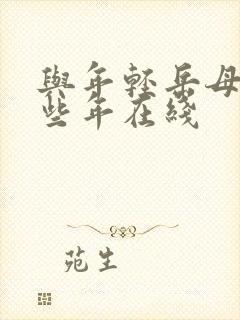 與年輕岳母
些年在綫
苑生